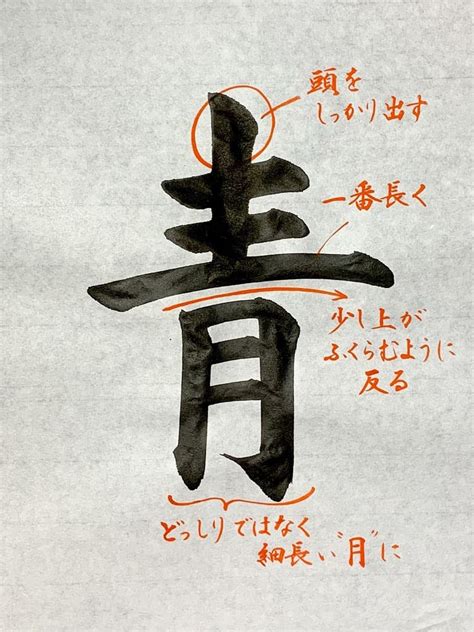 頭を
しっかり出す
青
一番長く
少し上が
ふくらむように
反る
どっしりではなく
細長い"月"に